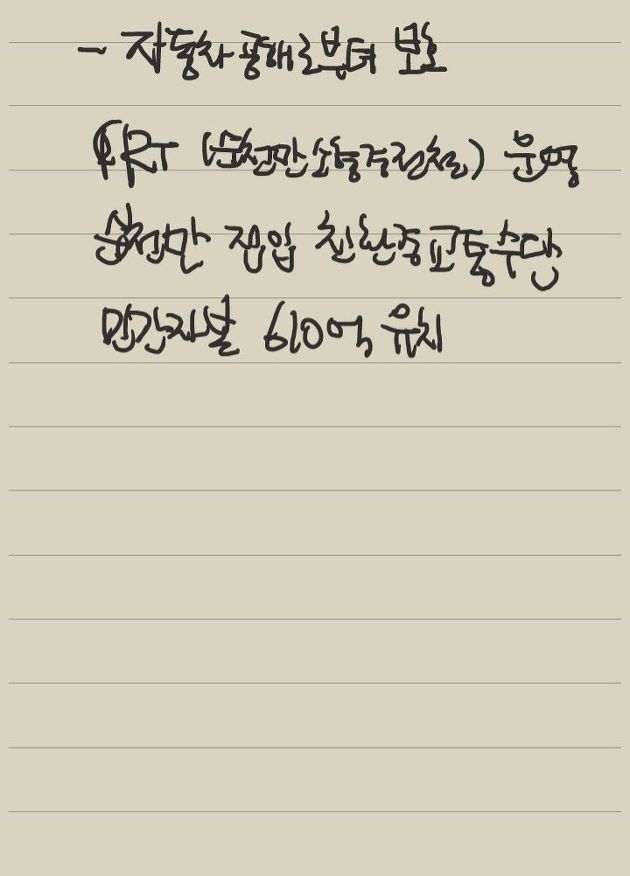 - 자동차 공해로부터 보호
PRT (순천만소형경전철) 운영
순천만 진입 친환경교통수단
민간자본 610억 유치